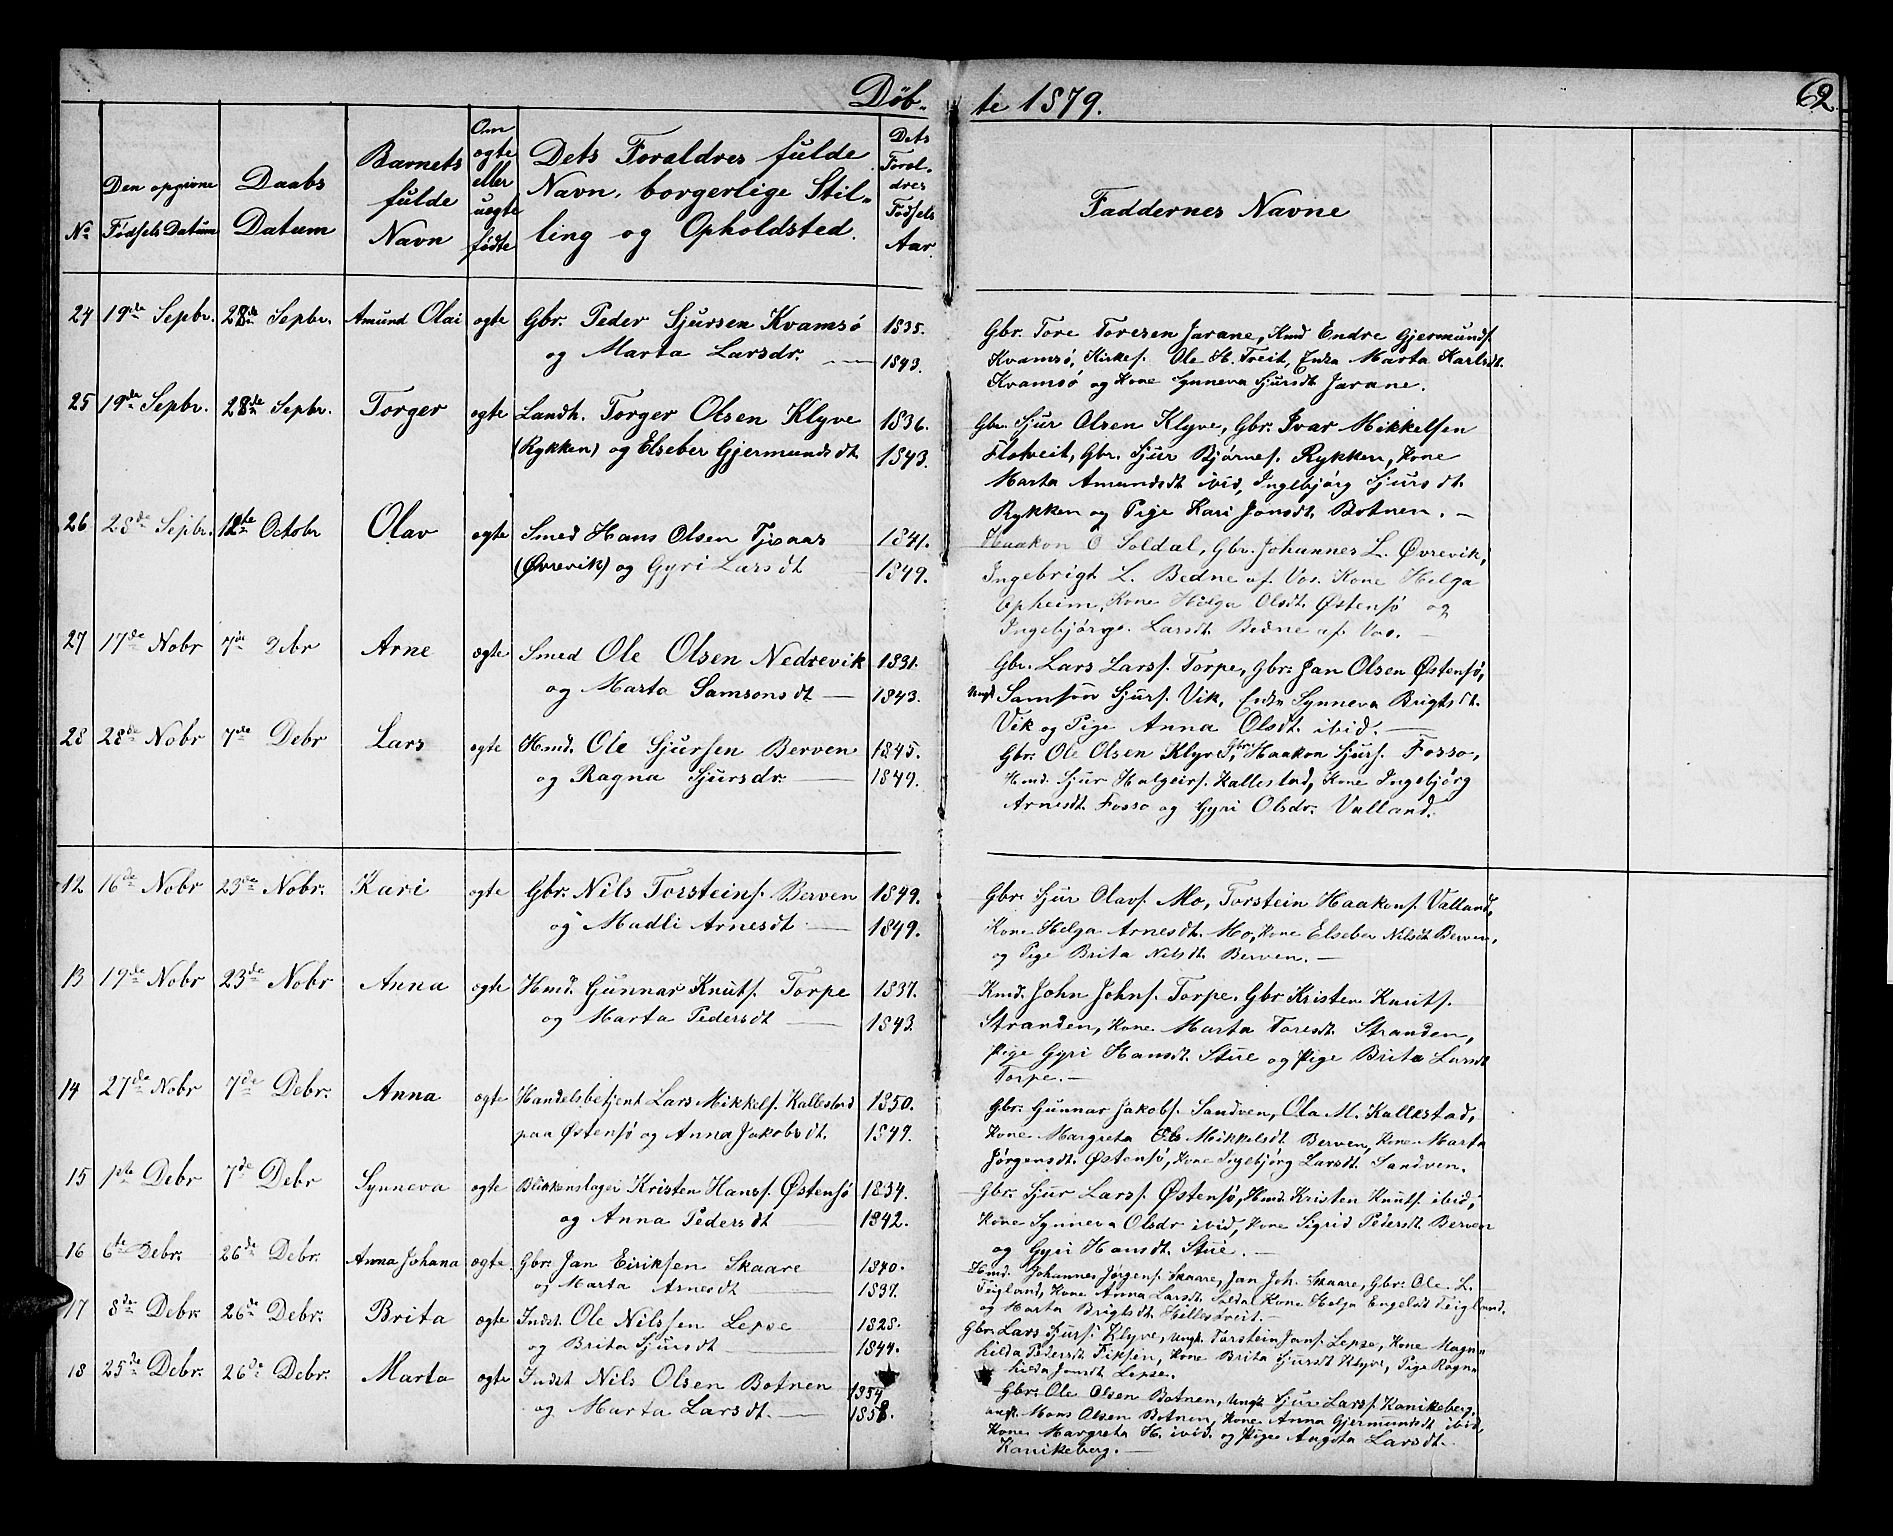 Døb- te 1879. 62
No
Den opgivne Fødsels Datum
Daabs Datum
Barnets fulde Navn
Om ægte eller uægte fødte
Dets Foraldres fulde Navn, borgerlige Stil- ling og Opholdsted.
Dets Foral- dres Fødsels Aar.
Faddernes Navne
24 19de Sepbr. 28de Sepbr. Amund Olai ægte Gbr. Peder Sjursen Kvamsø 1835.
og Marta Larsdr. 1843.
Gbr. Tore Toresen Jarane, Kmd Endre Gjermunds.
Kvamsø, Kirkes. Ole H. Treit, Enke Marta Karlsdt.
Kvamsø og Kone Synneva Sjursdt Jarane.
25 19de Sepbr. 28de Sepbr. Torger ægte Landh. Torger Olsen Klyve 1836.
(Rykken) og Elseber Gjermundsdt 1843.
Gbr. Sjur Olsen Klyve, Gbr. Ivar Mikkelsen
Flotveit, Gbr. Sjur Bjørnes. Rykken, Kone
Marta Amundsdt ibid, Ingebjørg Sjursdt.
Rykken og Pige Kari Jonsdt. Botnen. —
26 28de Sepbr. 12te Octobr Olav ægte Smed Hans Olsen Tjosaas 1841.
(Øvrevik) og Gyri Larsdt 1849.
Haakon O Soldal, Gbr. Johannes L. Øvrevik,
Ingebrigt L. Bedne af Vos. Kone Helga
Opheim, Kone Helga Olsdt. Østensø og
Ingebjørge. Larsdt. Bedne af Vos. —
27 17de Nobr 7de Debr Arne ægte Smed Ole Olsen Nedrevik 1831.
og Marta Samsonsdt — 1843.
Gbr. Lars Larss. Torpe, Gbr. Jan Olsen Østensø,
Ungk Samson Sjurs. Vik, Enke Synneva Brigtsdt.
Vik og Pige Anna Olsdt. ibid. —
28 28de Nobr 7de Debr Lars ægte Hmd. Ole Sjursen Berven 1845.
og Ragna Sjursdr. — 1849.
Gbr. Ole Olsen Klyve, Gbr. Haakon Sjurs. Fosso,
Hmd. Sjur Halgeirs. Kallestad, Kone Ingebjørg
Arnesdt. Fosso og Gyri Olsdr. Valland.
12 16de Nobr 23de Nobr. Kari ægte Gbr. Nils Torsteins. Berven 1849.
og Madli Arnesdt. — 1849.
Gbr. Sjur Olavs. Mo, Torstein Haakons. Valland,
Kone Helga Arnesdt. Mo, Kone Elseber Nilsdt Berven,
og Pige Brita Nilsdt. Berven. —
13 19de Nobr 23de Nobr Anna ægte Hmd. Gunnar Knuts. Torpe 1837.
og Marta Pedersdt — 1843.
Kmd. John Johns. Torpe, Gbr Kristen Knuts.
Stranden, Kone Marta Toresdt. Stranden,
Pige Gyri Hansdt. Stue og Pige Brita Larsdt
Torpe. —
14 27de Nobr 7de Debr. Anna ægte Handelsbetjent Lars Mikkels. Kallestad 1850.
paa Østensø og Anna Jakobsdt. 1847.
Gbr. Gunnar Jakobs. Sandven, Ola M. Kallestad,
Kone Margreta Mikkelsdt Berven, Kone Marta
Jørgensdt. Østensø, Kone Ingebjørg Larsdt. Sandven.
15 1ste Debr 7de Debr Synneva ægte Blikkenslager Kristen Hanss. Østensø 1834.
og Anna Pedersdt — 1842.
Gbr. Sjur Larss. Østensø, Hmd. Kristen Knuts. ibid,
Kone Synneva Olsdr ibid, Kone Sigrid Pedersdt Berven
og Gyri Hansdt. Stue. —
16 6te Debr. 26de Debr. Anna Johana ægte. Gbr. Jan Eiriksen Skaare 1840.
og Marta Arnesdt — 1837.
Hmd. Johannes Jørgens. Skaare, Jan Joh. Skaare, Gbr. Ole L.
Teigland, Kone Anna Larsdt. Soldal Kone Helga Engelsdt Teigland.
og Marta Brigtsdt. Hillesøreit. —
17 8de Debr. 26de Debr. Brita ægte Indst. Ole Nilssen Lepse — 1828.
og Brita Sjursdt — 1844.
Gbr. Lars Sjurs. Klyve, Ungk. Torstein Jans. Lepse, Kone Magn-
hilda Pedersdt Fiksen, Kone Brita Sjursdt Klyve, Pige Ragn-
hilda Jonsdt Lepse.
18 25de Debr. 26de Debr. Marta ægte Indst Nils Olsen Botnen 1854
og Marta Larsdt. — 1858.
Gbr. Ole Olsen Botnen, Ungk Sjur Larss. Kanikeberg,
Ungk. Mons Olsen Botnen, Kone Anna Gjermundsdt ibid,
Kone Margreta H. ibid. og Pige Angsta Larsdt.
Kanikeberg. —